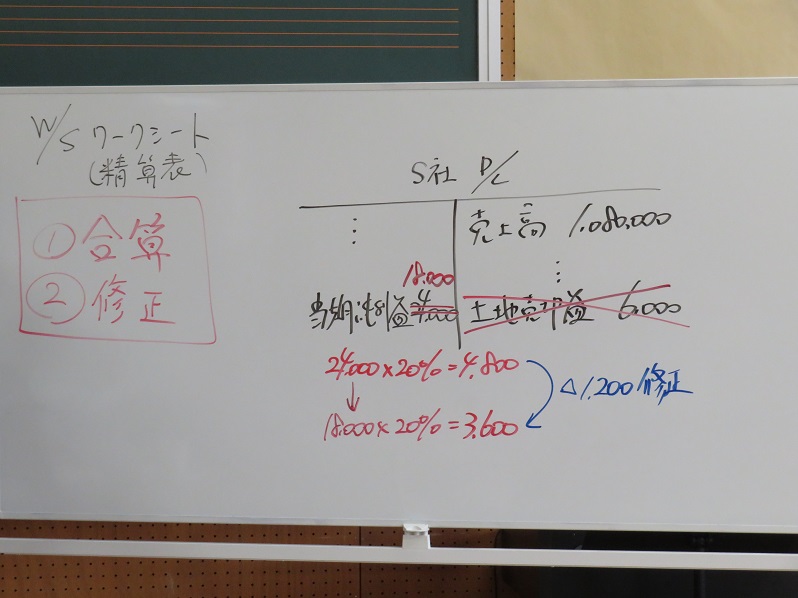 W/S ワークシート
(精算表)
① 合算
② 修正
S社 P/L
⋮
売上高 1.080.000
⋮
18.000
当期純利益 24.000
土地売却益 6.000
24.000×20%=4.800
↓
18.000×20%=3.600
△1.200修正